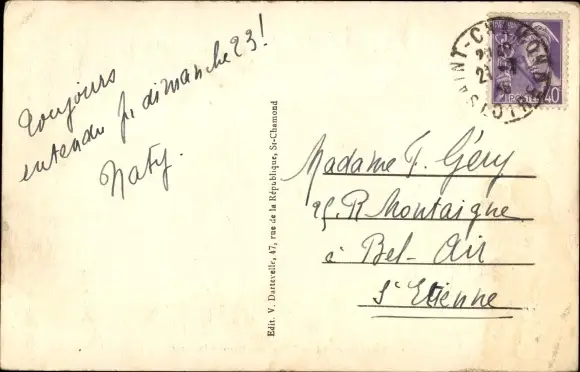 Toujours
entendu pr dimanche 23!
Naty.
Edit. V. Dartevelle, 47, rue de la République, St-Chamond
SAINT-CHAMOND
LOIRE
POSTES 40
Madame F. Géry
R. Montaigne
à Bel-Air
St Etienne